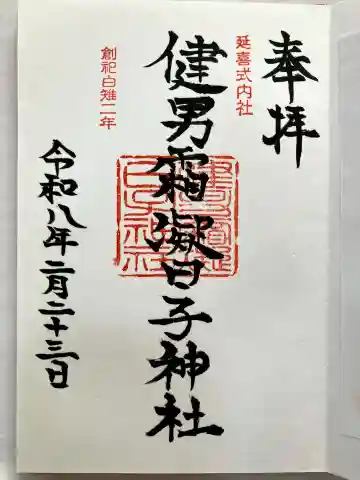 奉拝
延喜式内社
健男霜凝日子神社
創祀白雉二年
令和八年二月二十三日